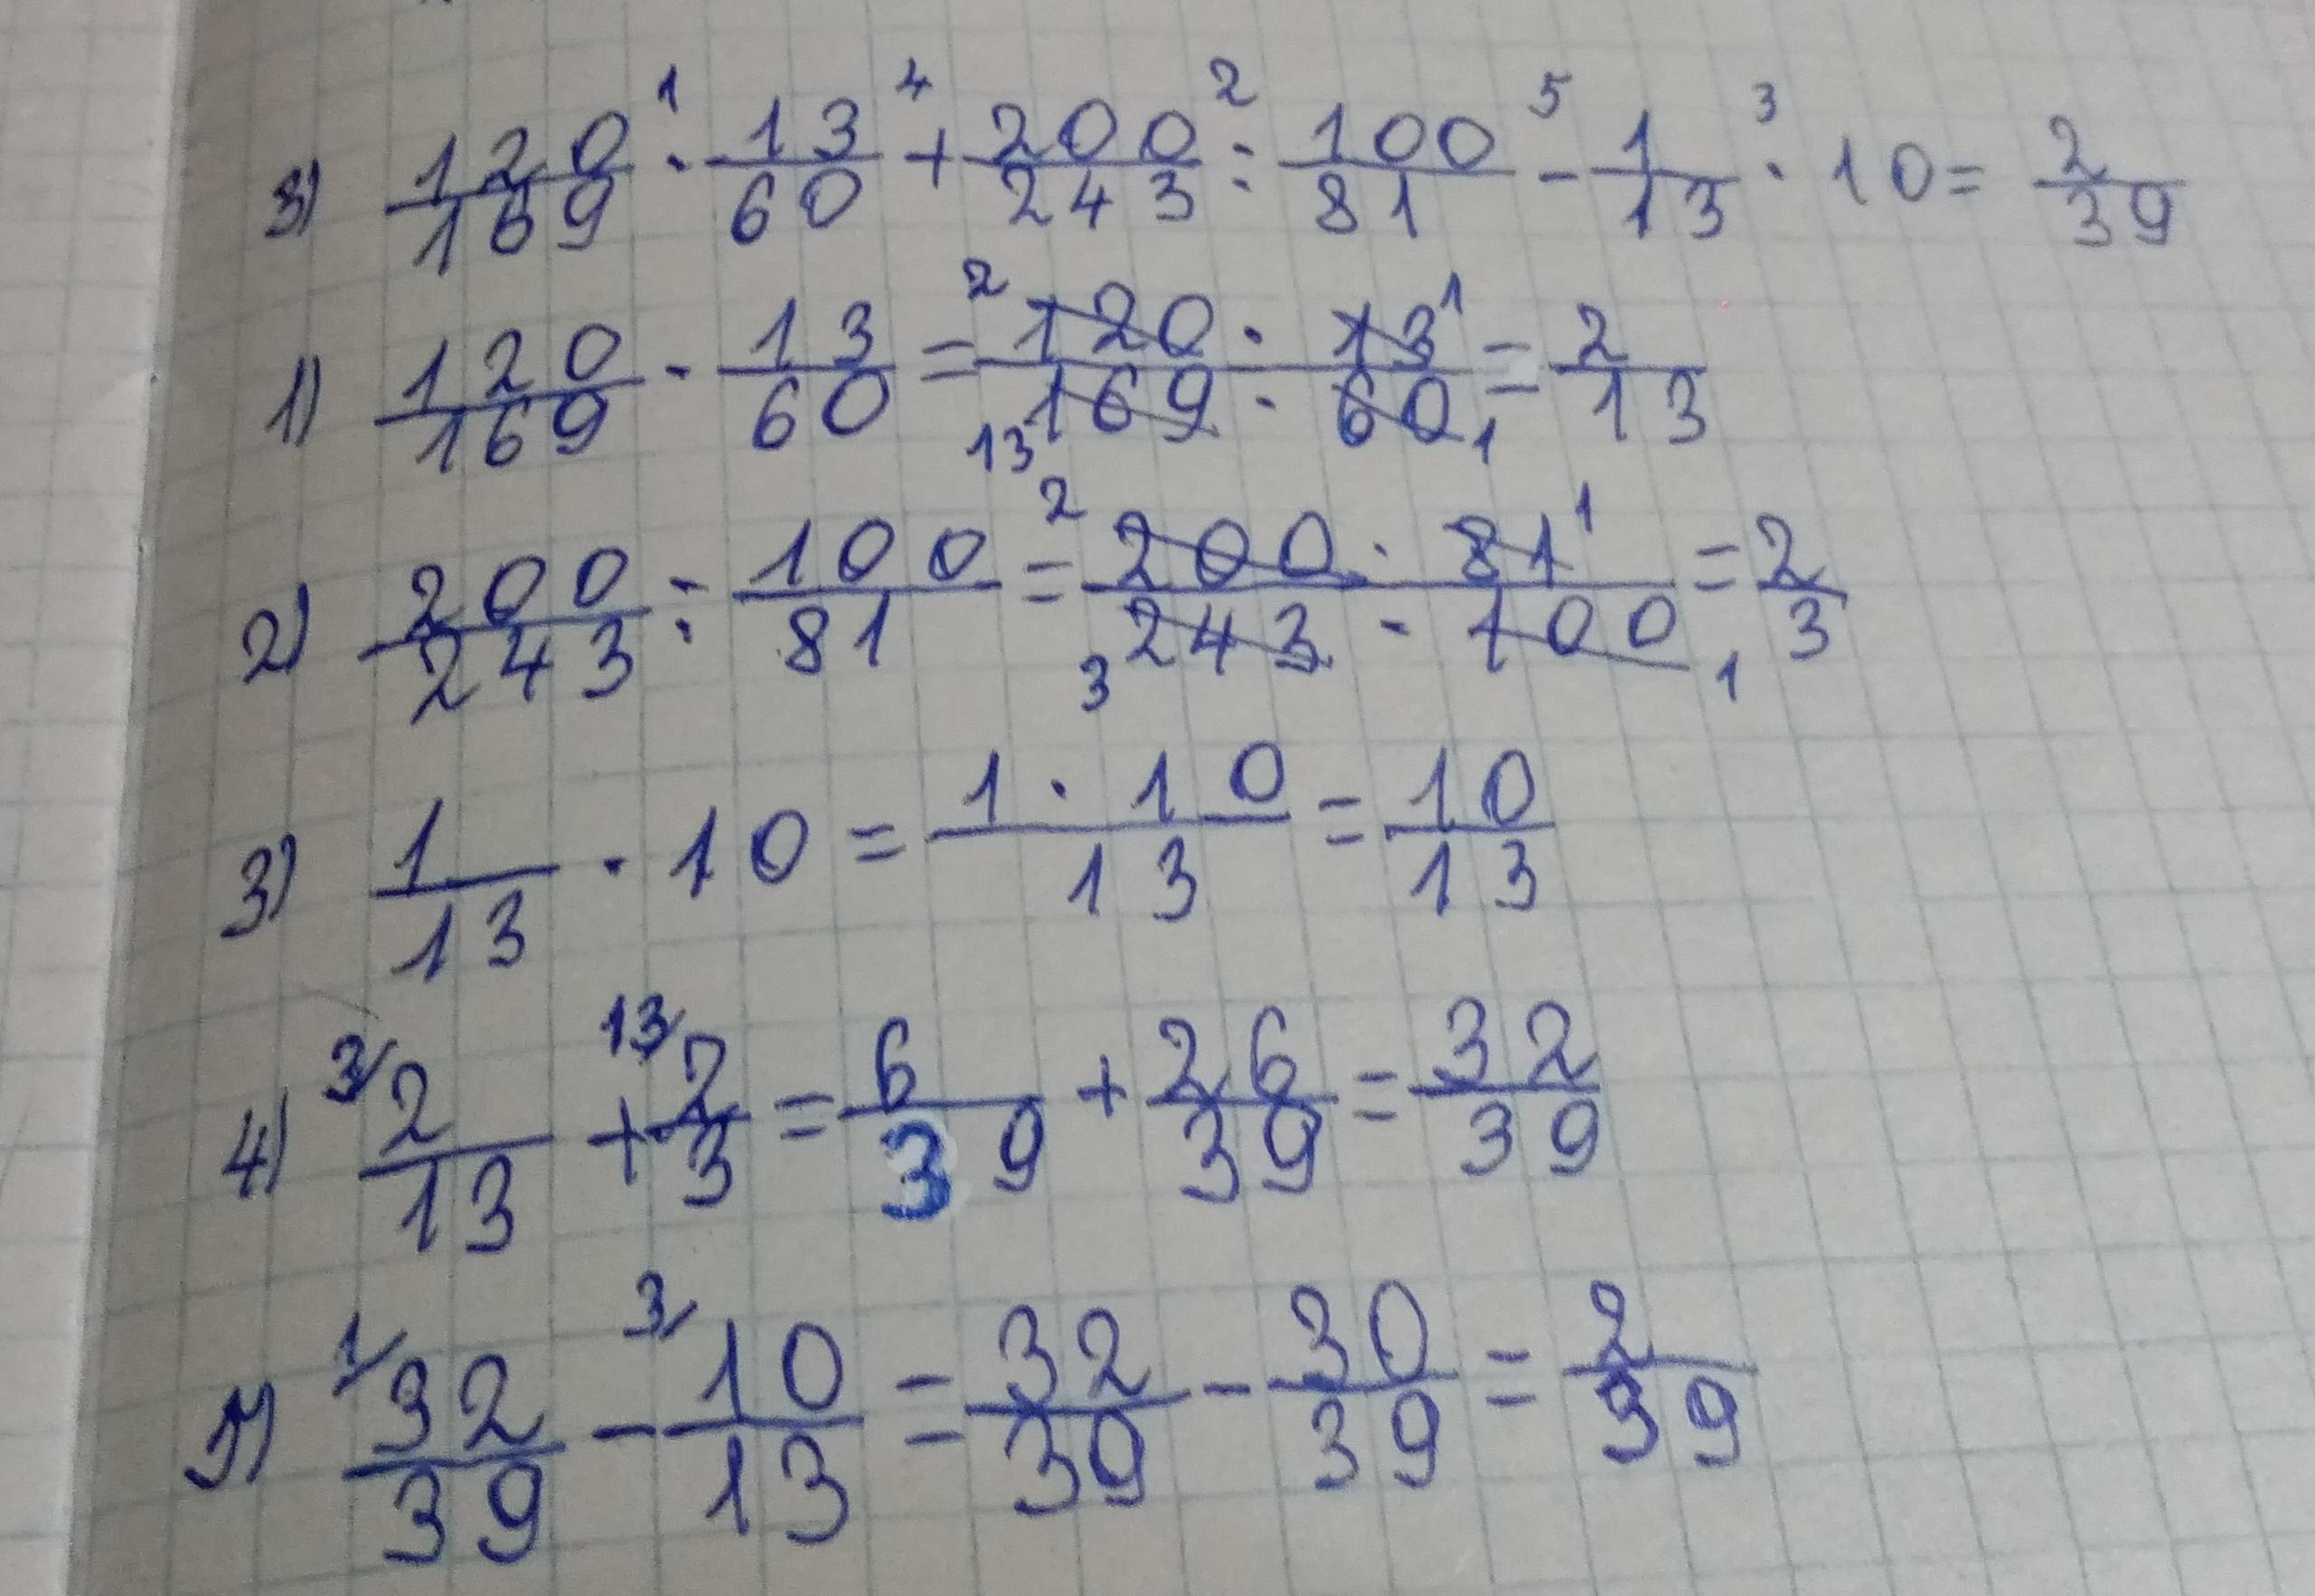 3) 120/169 ¹· 13/60 ⁴+ 200/243 ²: 100/81 ⁵- 1/13 ³· 10 = 2/39
1) 120/169 · 13/60 = ²120 · 13¹ / ₁₃169 · 60₁ = 2/13
2) 200/243 : 100/81 = ²200 · 81¹ / ₃243 · 100₁ = 2/3
3) 1/13 · 10 = 1 · 10 / 13 = 10/13
4) ³⁄ 2/13 + ¹³⁄ 2/3 = 6/39 + 26/39 = 32/39
5) ¹⁄ 32/39 - ³⁄ 10/13 = 32/39 - 30/39 = 2/39